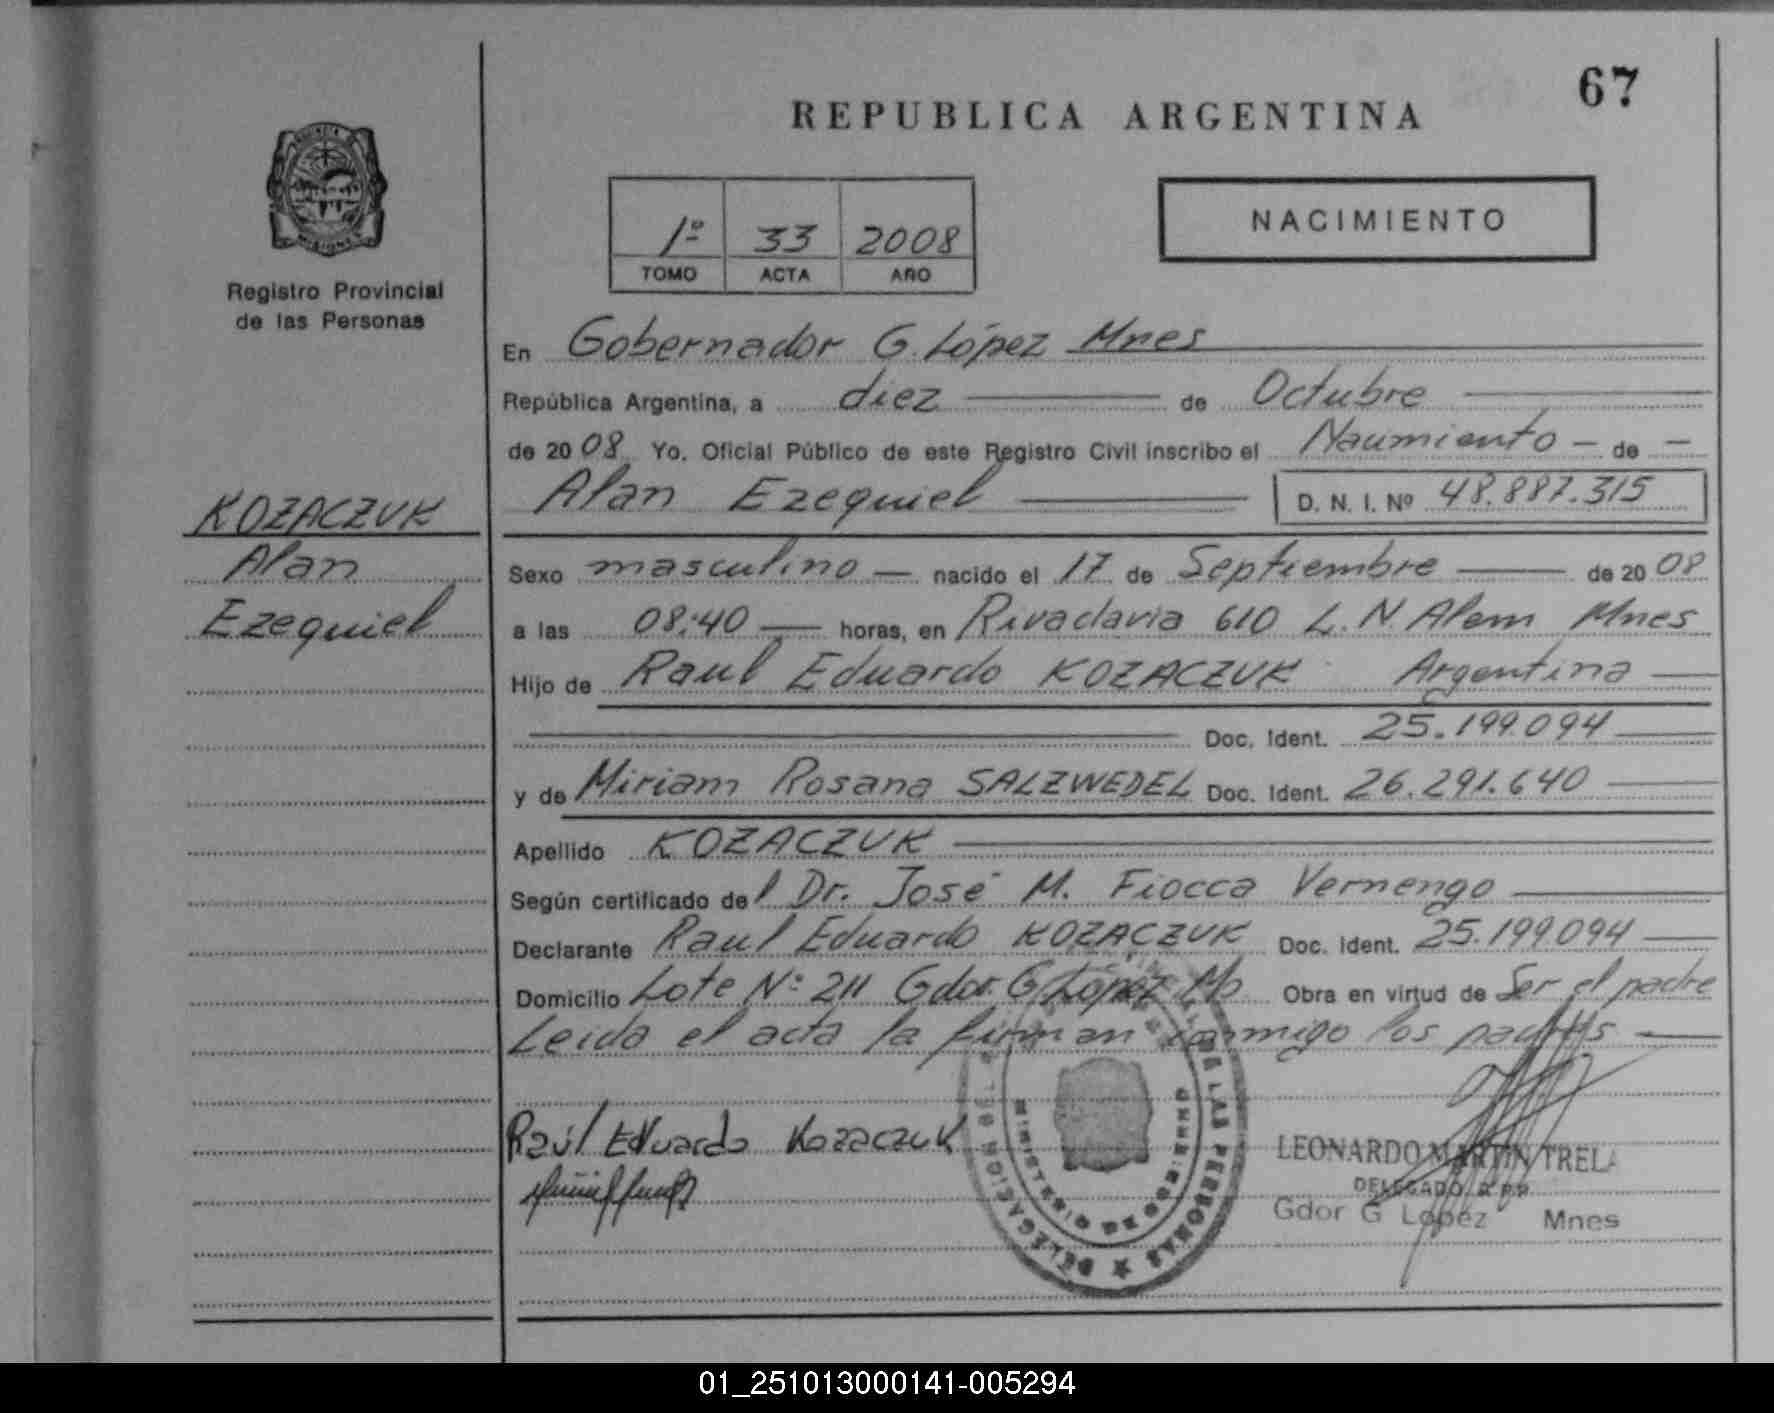 67
REPUBLICA ARGENTINA
1º 33 2008
TOMO ACTA AÑO
NACIMIENTO
MISIONES
Registro Provincial
de las Personas
KOZACZUK
Alan
Ezequiel
En Gobernador G. López Mnes
República Argentina, a diez de Octubre
de 2008 Yo. Oficial Público de este Registro Civil inscribo el Nacimiento - de -
Alan Ezequiel D. N. I. Nº 48.887.315
Sexo masculino - nacido el 17 de Septiembre de 2008
a las 08:40 horas, en Rivadavia 610 L. N. Alem Mnes
Hijo de Raul Eduardo KOZACZUK Argentina
Doc. Ident. 25.199.094
y de Miriam Rosana SALZWEDEL Doc. Ident. 26.291.640
Apellido KOZACZUK
Según certificado del Dr. José M. Fiocca Vernengo
Declarante Raul Eduardo KOZACZUK Doc. Ident. 25.199094
Domicilio Lote Nº 211 Gdor. G. López Mo Obra en virtud de Ser el padre
Leida el acta la firman conmigo los padres
Raúl Eduardo Kozaczuk
DELEGACION DE LAS PERSONAS
MINISTERIO DE GOBIERNO
LEONARDO MARTIN TRELA
DELEGADO R.P.P.
Gdor G López Mnes
01_251013000141-005294